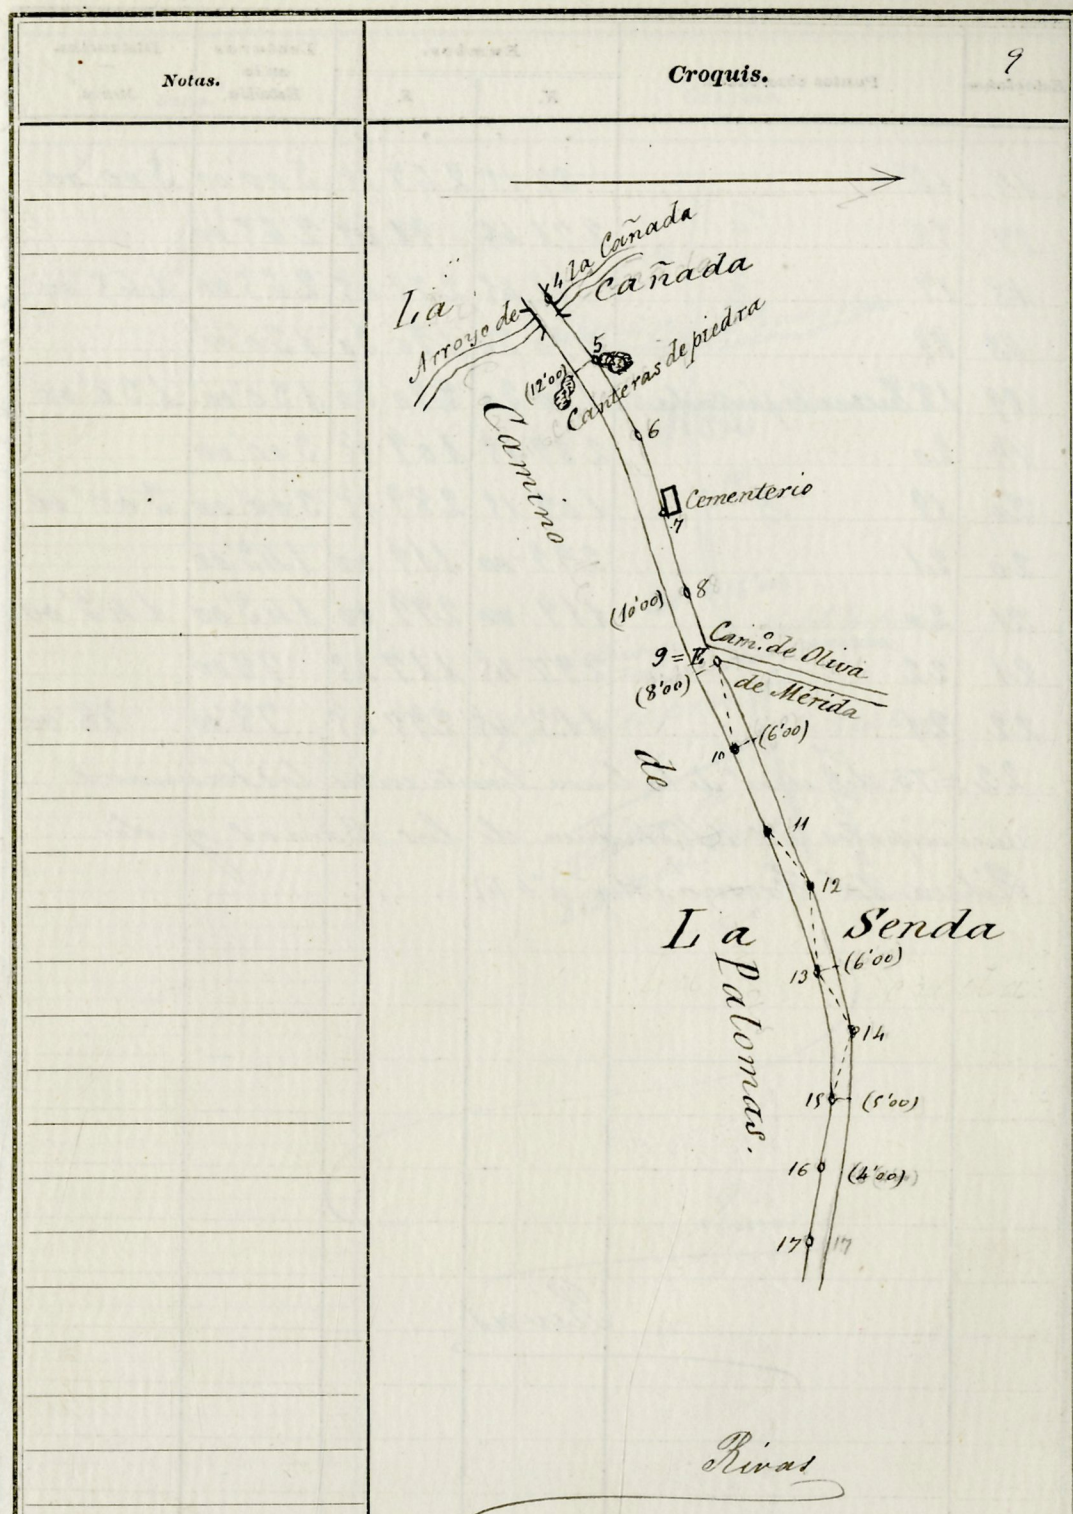 Notas.
Croquis.
9
4 la Cañada
La Cañada
Arroyo de
5
(12'00)
Canteras de piedra
6
Camino
Cementerio
7
8
(10'00)
Cam.º de Oliva
9 = E
de Mérida
(8'00)
(6'00)
10
de
11
12
La Senda
13
(6'00)
Palomas.
14
15
(5'00)
16
(4'00)
17
17
Rivas